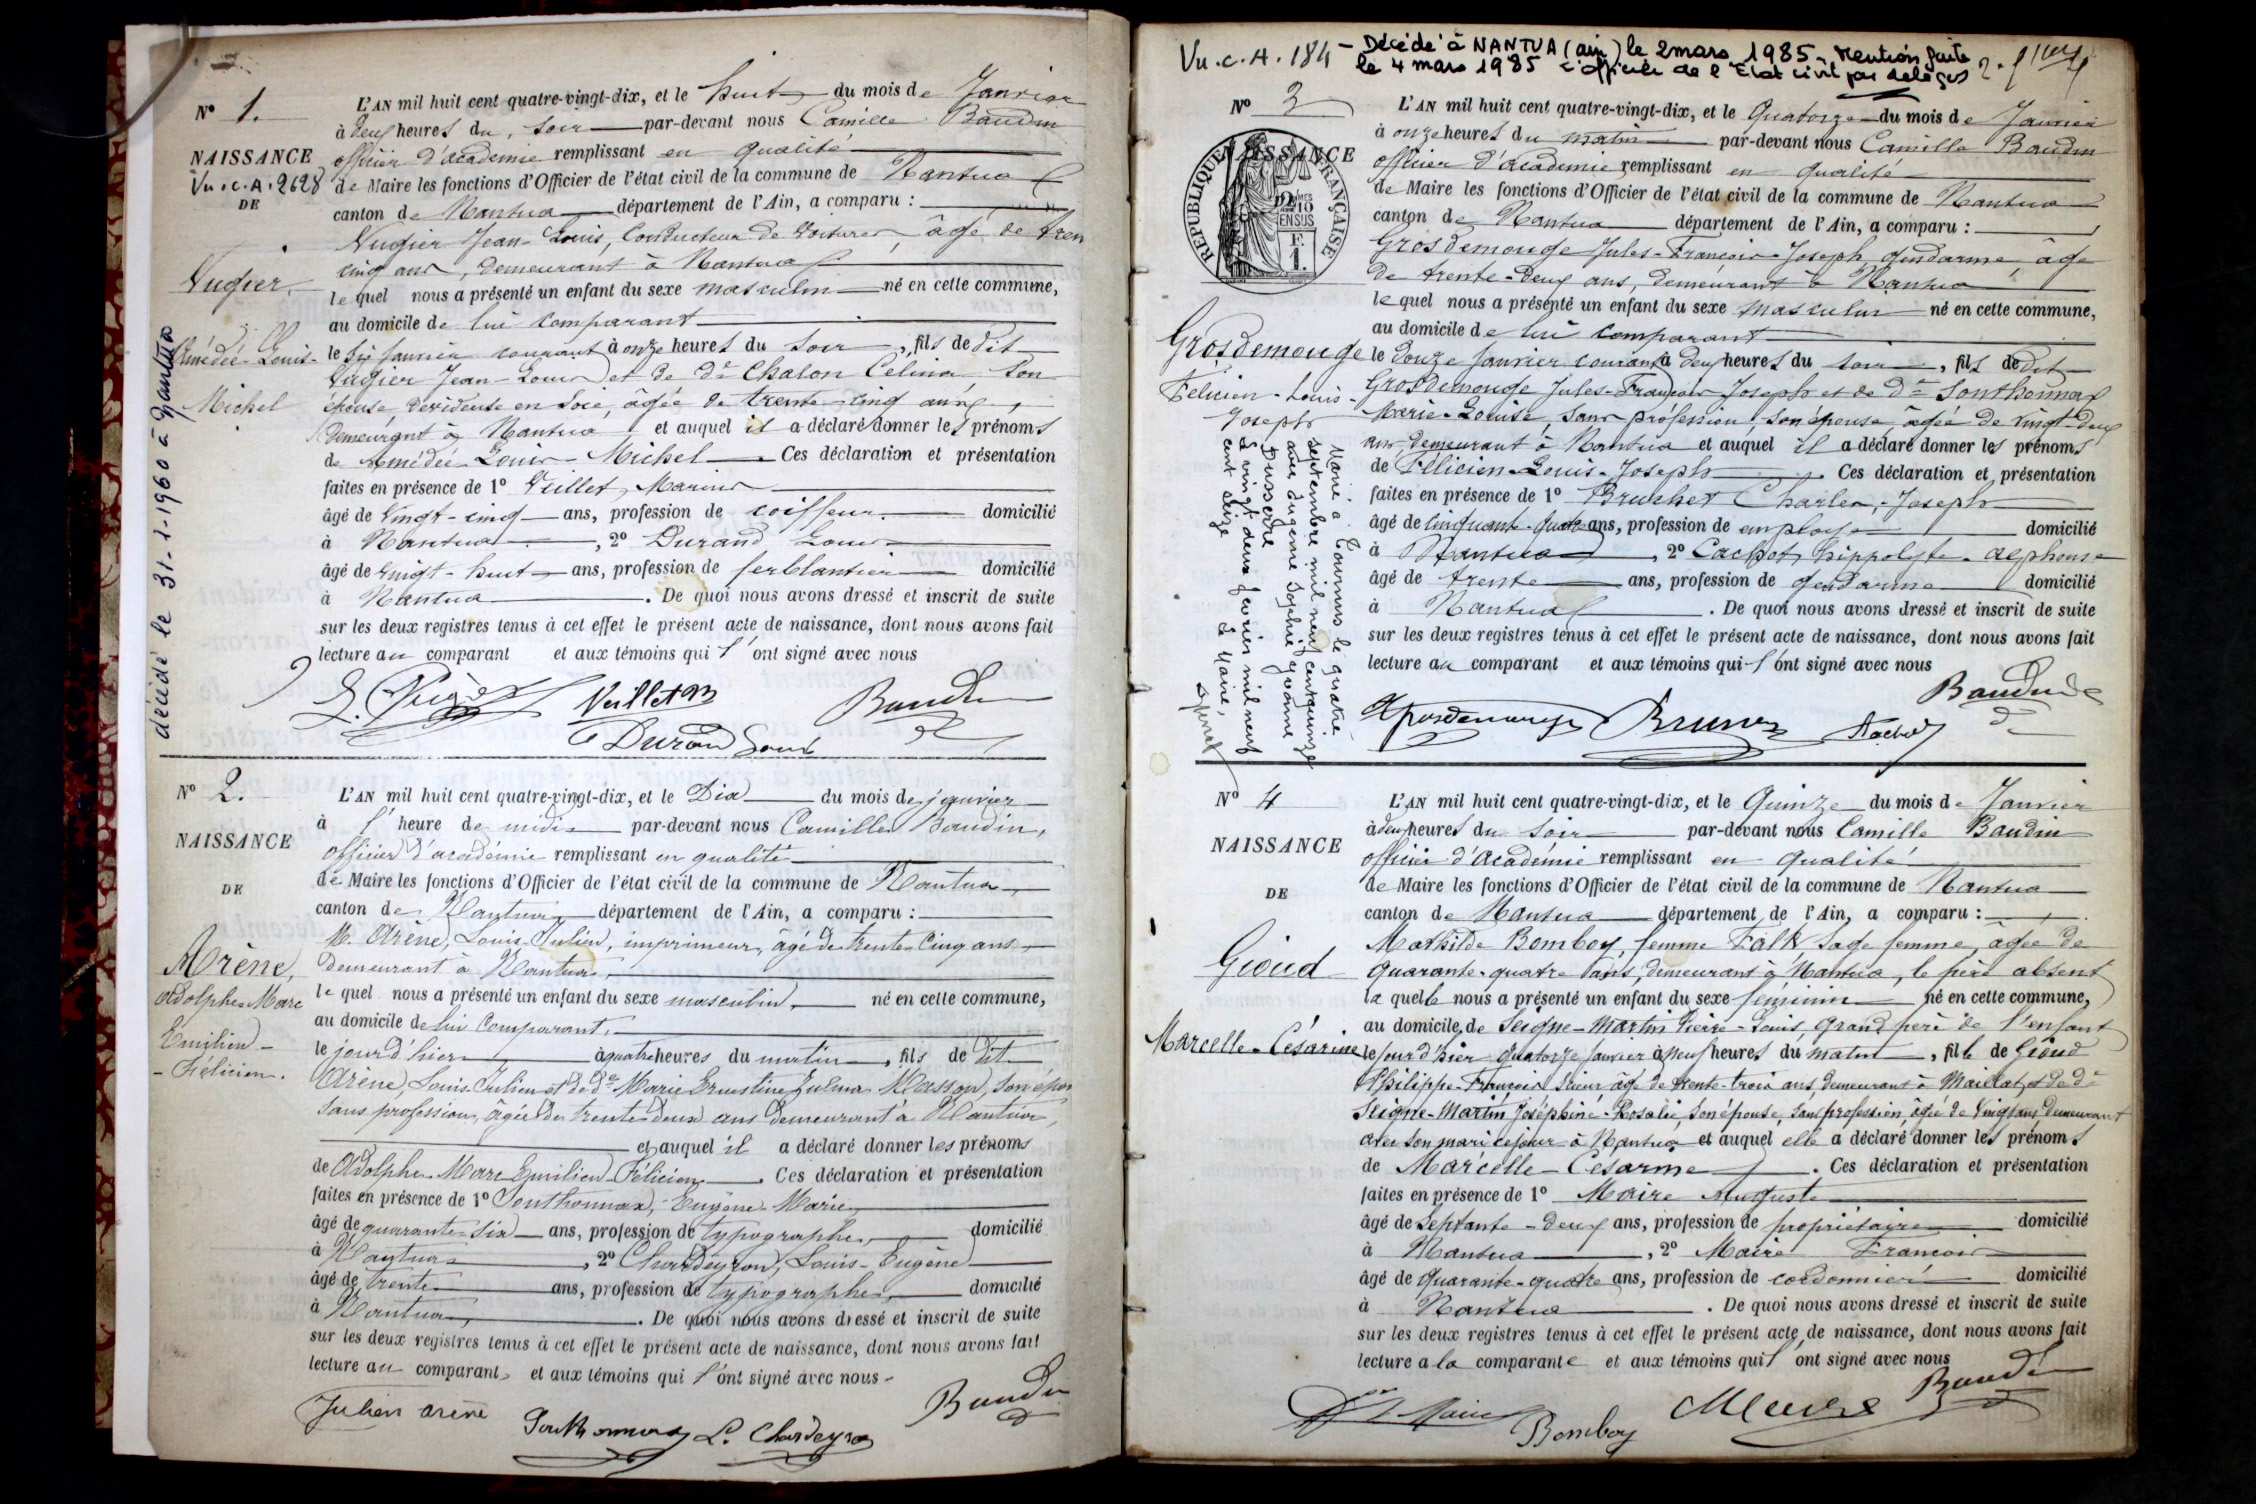 Nº 1.
NAISSANCE
Vu.c.A.2628
DE
Vugier
Amédée-Louis-
Michel
décédé le 31-1-1960 à Nantua
L'AN mil huit cent quatre-vingt-dix, et le huit du mois de Janvier
à deux heures du soir par-devant nous Camille Baudin
officier d'académie remplissant en qualité
de Maire les fonctions d'Officier de l'état civil de la commune de Nantua
canton de Nantua département de l'Ain, a comparu :
Vugier Jean-Louis, Conducteur de Voitures, âgé de tren
cinq ans, demeurant à Nantua
le quel nous a présenté un enfant du sexe masculin né en cette commune,
au domicile de lui comparant
le six Janvier courant à onze heures du soir, fils de dit
Vugier Jean-Louis et de de Chalon Célina son
épouse, dévideuse en soie, âgée de trente-cinq ans,
demeurant à Nantua et auquel il a déclaré donner les prénoms
de Amédée-Louis-Michel. Ces déclaration et présentation
faites en présence de 1º Veillet, Marius
âgé de Vingt-cinq ans, profession de coiffeur domicilié
à Nantua, 2º Durand Louis
âgé de Vingt-huit ans, profession de ferblantier domicilié
à Nantua. De quoi nous avons dressé et inscrit de suite
sur les deux registres tenus à cet effet le présent acte de naissance, dont nous avons fait
lecture au comparant et aux témoins qui l'ont signé avec nous
Veillet Baudin
Durand Louis
Nº 2.
NAISSANCE
DE
Arène,
Adolphe-Marc
Emilien-
-Félicien.
L'AN mil huit cent quatre-vingt-dix, et le Dix du mois de janvier
à l'heure de midi par-devant nous Camille Baudin,
officier d'académie remplissant en qualité
de Maire les fonctions d'Officier de l'état civil de la commune de Nantua
canton de Nantua département de l'Ain, a comparu :
M. Arène, Louis-Julien, imprimeur, âgé de trente-cinq ans
demeurant à Nantua,
le quel nous a présenté un enfant du sexe masculin, né en cette commune,
au domicile de lui comparant,
le jour d'hier à quatre heures du matin, fils de dit
Arène, Louis-Julien et de de Marie Ernestine Zulma Masson, son épou
sans profession, âgée de trente-deux ans demeurant à Nantua,
et auquel il a déclaré donner les prénoms
de Adolphe-Marc Emilien-Félicien. Ces déclaration et présentation
faites en présence de 1º Sonthonnax, Eugène-Marie,
âgé de quarante-six ans, profession de typographe, domicilié
à Nantua, 2º Chardeyron, Louis-Eugène
âgé de trente ans, profession de typographe, domicilié
à Nantua, . De quoi nous avons dressé et inscrit de suite
sur les deux registres tenus à cet effet le présent acte de naissance, dont nous avons fait
lecture au comparant, et aux témoins qui l'ont signé avec nous.
Julien Arène Sonthonnax L. Chardeyron Baudin
Vu.c.A.184 - Décédé à NANTUA (ain) le 2 mars 1985. Mention faite
le 4 mars 1985 L'officier de l'Etat civil par délégué
Nº 3
NAISSANCE
RÉPUBLIQUE FRANÇAISE
2 DMES
10
EN SUS
F.
1.
Grosdemouge
Félicien-Louis-
Joseph
Marié à Tournus le quatre
septembre mil neuf cent quinze
avec Eugénie Sophie Yvonne
Le vingt deux février mil neuf
cent seize Le Maire,
L'AN mil huit cent quatre-vingt-dix, et le Quatorze du mois de Janvier
à onze heures du matin par-devant nous Camille Baudin
officier d'académie remplissant en qualité
de Maire les fonctions d'Officier de l'état civil de la commune de Nantua
canton de Nantua département de l'Ain, a comparu :
Grosdemouge Jules-François-Joseph, gendarme, âgé
de trente-deux ans, demeurant à Nantua
le quel nous a présenté un enfant du sexe masculin né en cette commune,
au domicile de lui comparant
le douze Janvier courant à deux heures du soir, fils de dit
Grosdemouge Jules-François Joseph et de de Sonthonnax
Marie-Louise, sans profession, son épouse âgée de vingt-deux
ans, demeurant à Nantua et auquel il a déclaré donner les prénoms
de Félicien-Louis-Joseph. Ces déclaration et présentation
faites en présence de 1º Bruchet Charles-Joseph
âgé de cinquante-quatre ans, profession de employé domicilié
à Nantua, 2º Cachot, hippolyte-alphonse
âgé de trente ans, profession de gendarme domicilié
à Nantua. De quoi nous avons dressé et inscrit de suite
sur les deux registres tenus à cet effet le présent acte de naissance, dont nous avons fait
lecture au comparant et aux témoins qui l'ont signé avec nous
Grosdemouge Baudin
Nº 4
NAISSANCE
DE
Gioud
Marcelle-Césarine
L'AN mil huit cent quatre-vingt-dix, et le Quinze du mois de Janvier
à deux heures du soir par-devant nous Camille Baudin
officier d'académie remplissant en qualité
de Maire les fonctions d'Officier de l'état civil de la commune de Nantua
canton de Nantua département de l'Ain, a comparu :
Mathilde Bomboy, femme Falk, sage femme, âgée de
quarante-quatre ans, demeurant à Nantua, le père absent
la quelle nous a présenté un enfant du sexe féminin né en cette commune,
au domicile de Seigne-Martin Pierre-Louis grand père de l'enfant
le jour d'hier quatorze Janvier à neuf heures du matin, fille de Gioud
Philippe-François, scieur âgé de trente-trois ans, demeurant à Maillat, et de de
Seigne-Martin Joséphine-Rosalie, son épouse, sans profession, âgée de Vingt ans, demeurant
avec son mari ce jour à Nantua et auquel elle a déclaré donner les prénoms
de Marcelle-Césarine. Ces déclaration et présentation
faites en présence de 1º Maire Auguste
âgé de Septante-deux ans, profession de propriétaire domicilié
à Nantua, 2º Maire François
âgé de quarante-quatre ans, profession de cordonnier domicilié
à Nantua. De quoi nous avons dressé et inscrit de suite
sur les deux registres tenus à cet effet le présent acte de naissance, dont nous avons fait
lecture a la comparante et aux témoins qui l'ont signé avec nous
Maire Bomboy Baudin